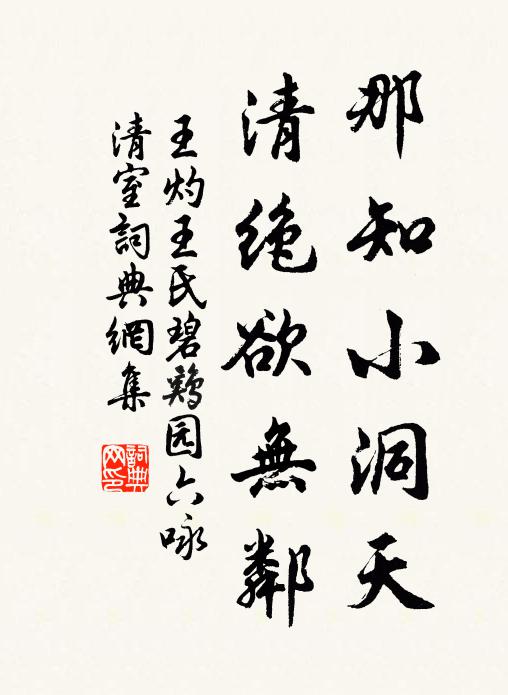 那知小洞天
清绝欲無鄰
王灼王氏碧鸡园六咏
清室詞典網集
詞典网印